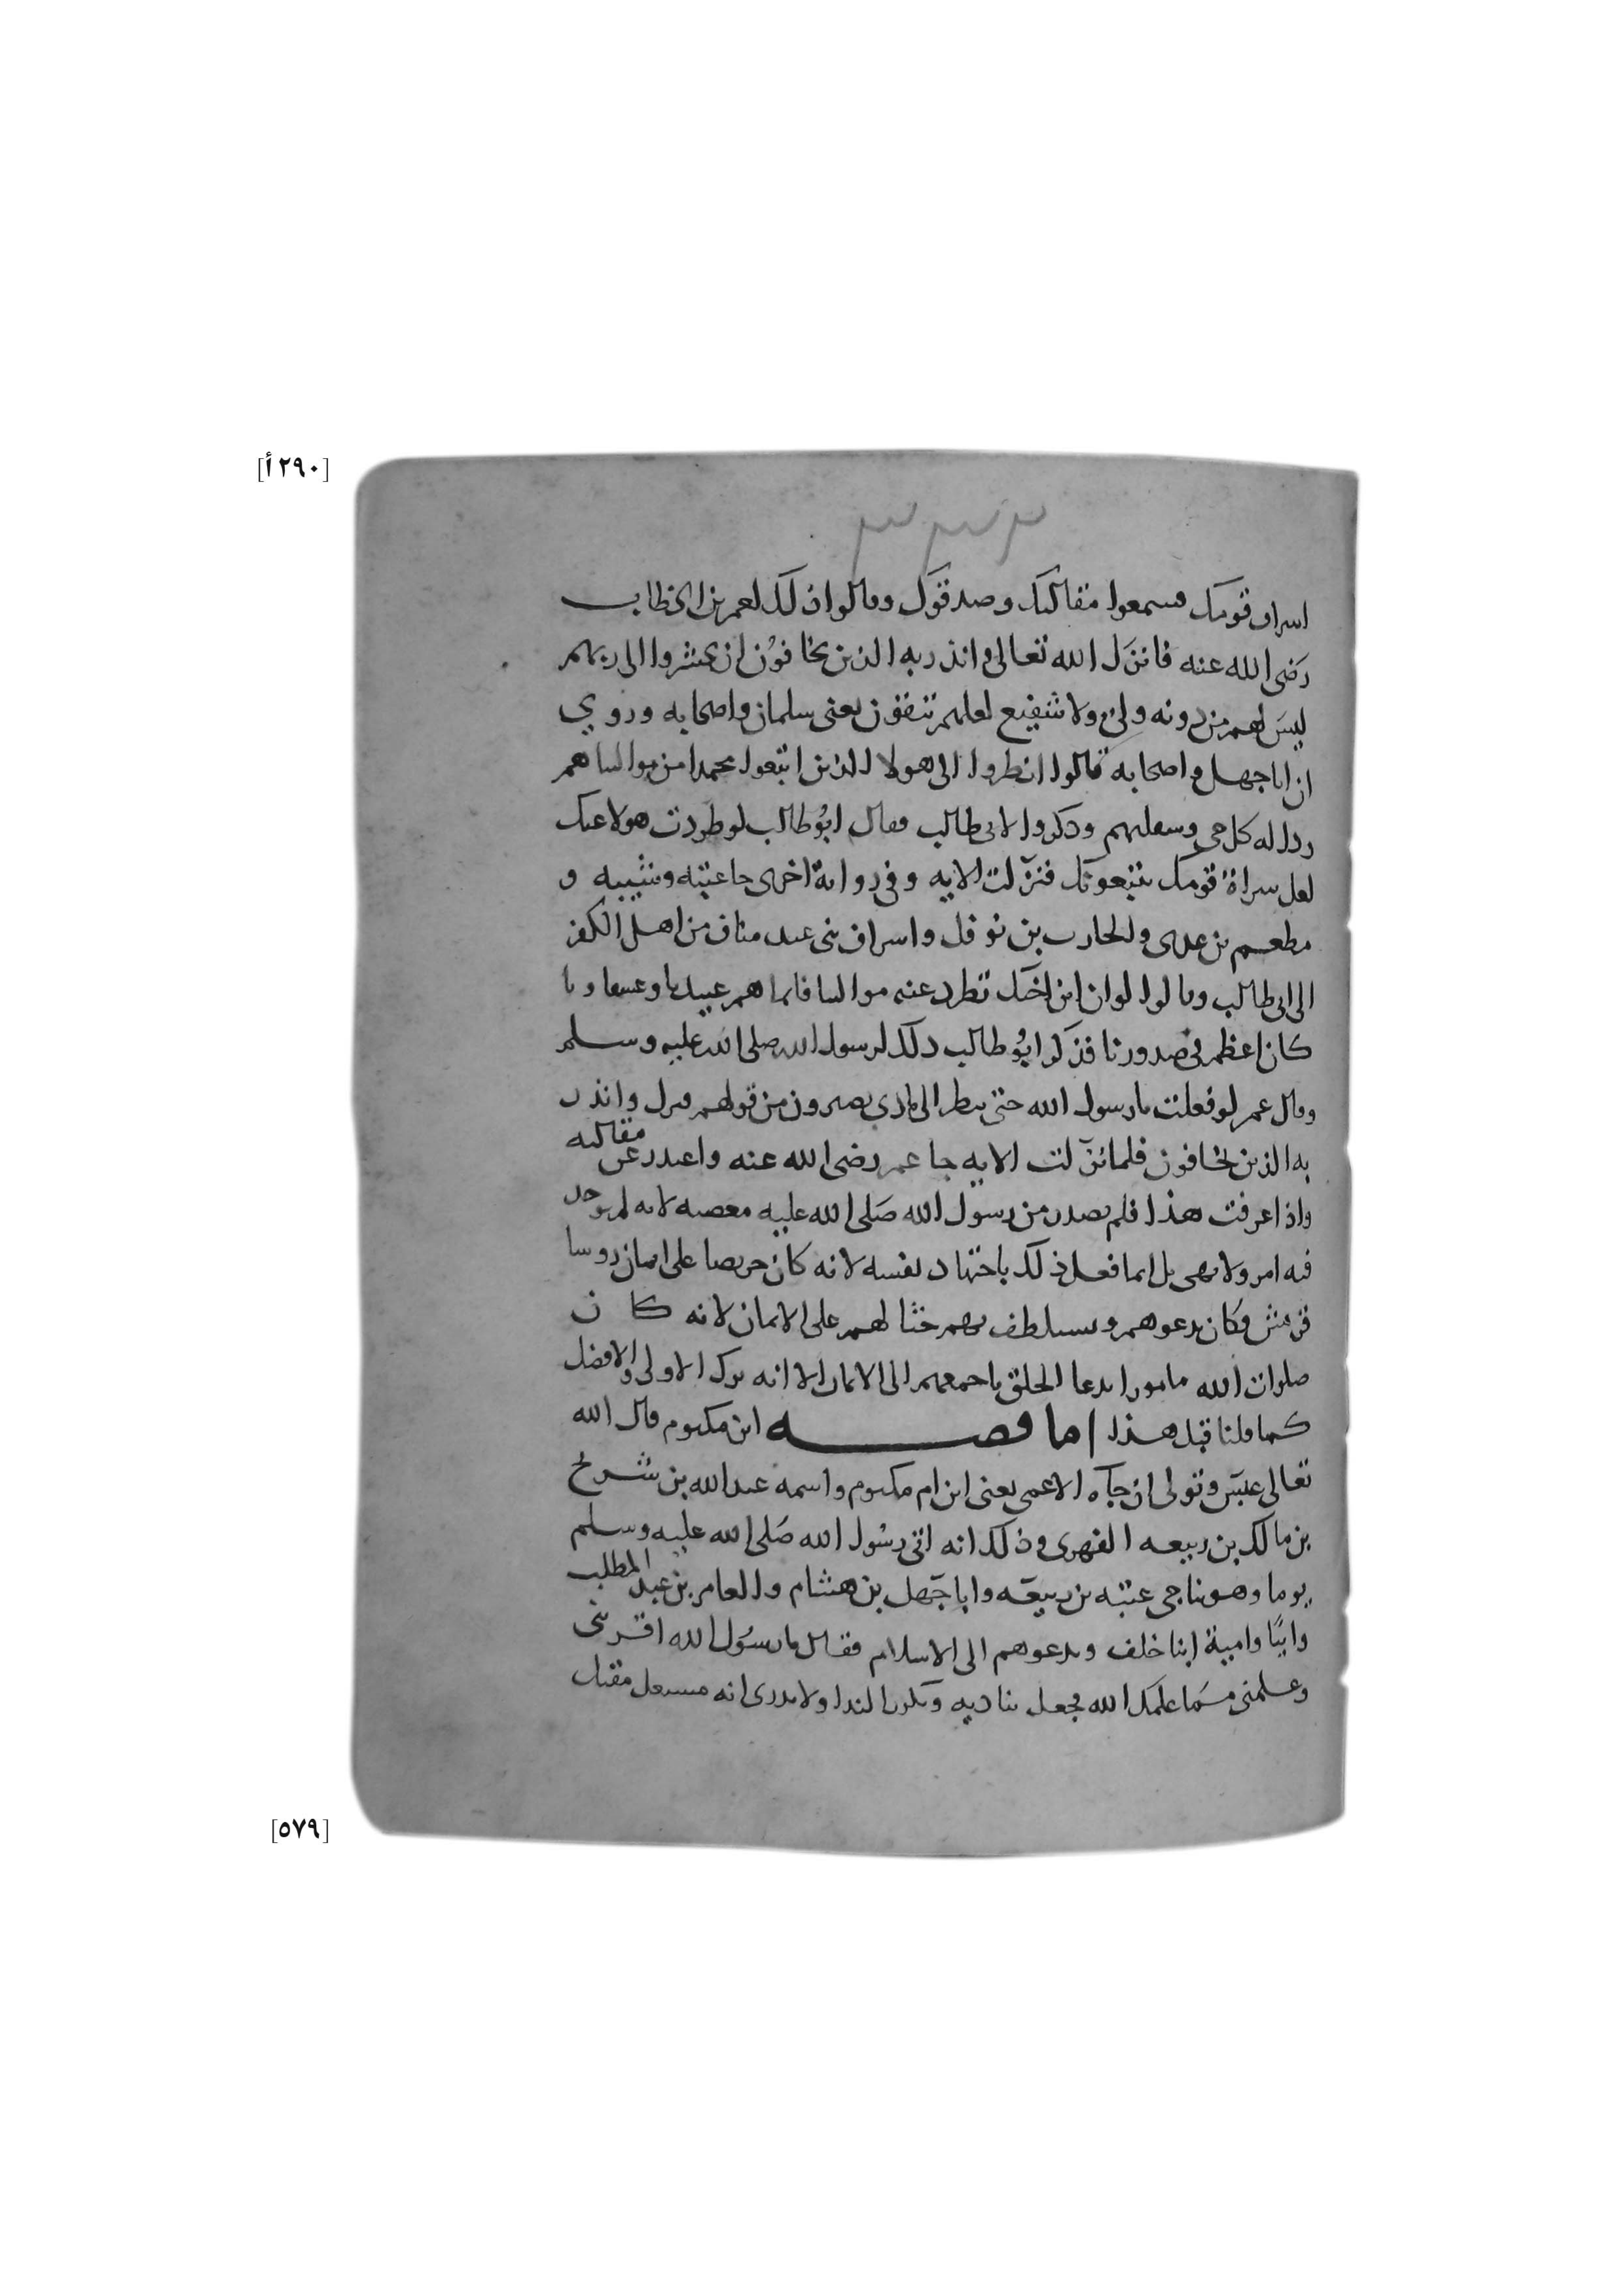 [٢٩٠ أ]
اسراف قومك فسمعوا مقالتك وصدقوك وقالوا ذلك لعمر بن الخطاب
رضى الله عنه فانزل الله تعالى وانذر به الذين يخافون ان يحشروا الى ربهم
ليس لهم من دونه ولي ولا شفيع لعلهم يتقون يعنى سلمان واصحابه وروي
ان ابا جهل واصحابه قالوا انظروا الى هولا الذين اتبعوا محمدا من موالينا هم
رذاله كل حى وسفلتهم وذكروا لابى طالب فقال ابو طالب لو طردت هولا عنك
لعل سراة قومك يتبعونك فنزلت الايه وفى رواية اخرى جا عتبه وشيبه و
مطعم بن عدى والحارث بن نوفل واشراف بنى عبد مناف من اهل الكفر
الى ابى طالب وقالوا لو ان ابن اخيك تطرد عنه موالينا فانما هم عبيدنا وعسفاونا
كان اعظم فى صدورنا فذكر ابو طالب ذلك لرسول الله صلى الله عليه وسلم
وقال عمر لو فعلت يا رسول الله حتى ينظر الى ماذي يصيرون من قولهم فنزل وانذر
به الذين يخافون فلما نزلت الايه جا عمر رضى الله عنه واعتذر عن مقالته
واذا عرفت هذا فلم يصدر من رسول الله صلى الله عليه معصيه لانه لم يوجد
فيه امر ولا نهى بل انما فعل ذلك باجتهاد نفسه لانه كان حريصا على ايمان روسا
قريش وكان يدعوهم ويستلطف بهم حثا لهم على الايمان لانه كان
صلوات الله مامورا بدعا الخلق باجمعهم الى الايمان الا انه ترك الاولى والافضل
كما قلنا قبل هذا اما قصه ابن مكتوم قال الله
تعالى عبس وتولى ان جآه الاعمى يعنى ابن ام مكتوم واسمه عبد الله بن شريح
بن مالك بن ربيعه الفهرى وذلك انه اتى رسول الله صلى الله عليه وسلم
يوما وهو يناجى عتبه بن ربيعه وابا جهل بن هشام والعامر بن عبد المطلب
وابيا وامية ابنا خلف ويدعوهم الى الاسلام فقال يا رسول الله اقرينى
وعلمنى مما علمك الله فجعل يناديه ويكرر الندا ولا يدرى انه مشتغل مقبل
[٥٧٩]